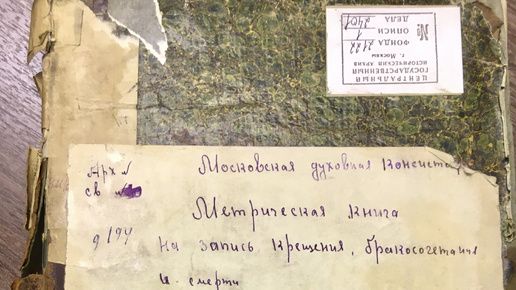 ЦЕНТРАЛЬНЫЙ
ГОСУДАРСТВЕННЫЙ
ИСТОРИЧЕСКИЙ АРХИВ
г. Москвы
ФОНДА
№ ОПИСИ 1
ДЕЛА
Арх №
Московская духовная Консистор
св
Метрическая книга
д 194
на запись крещения, бракосочетания
и смерти